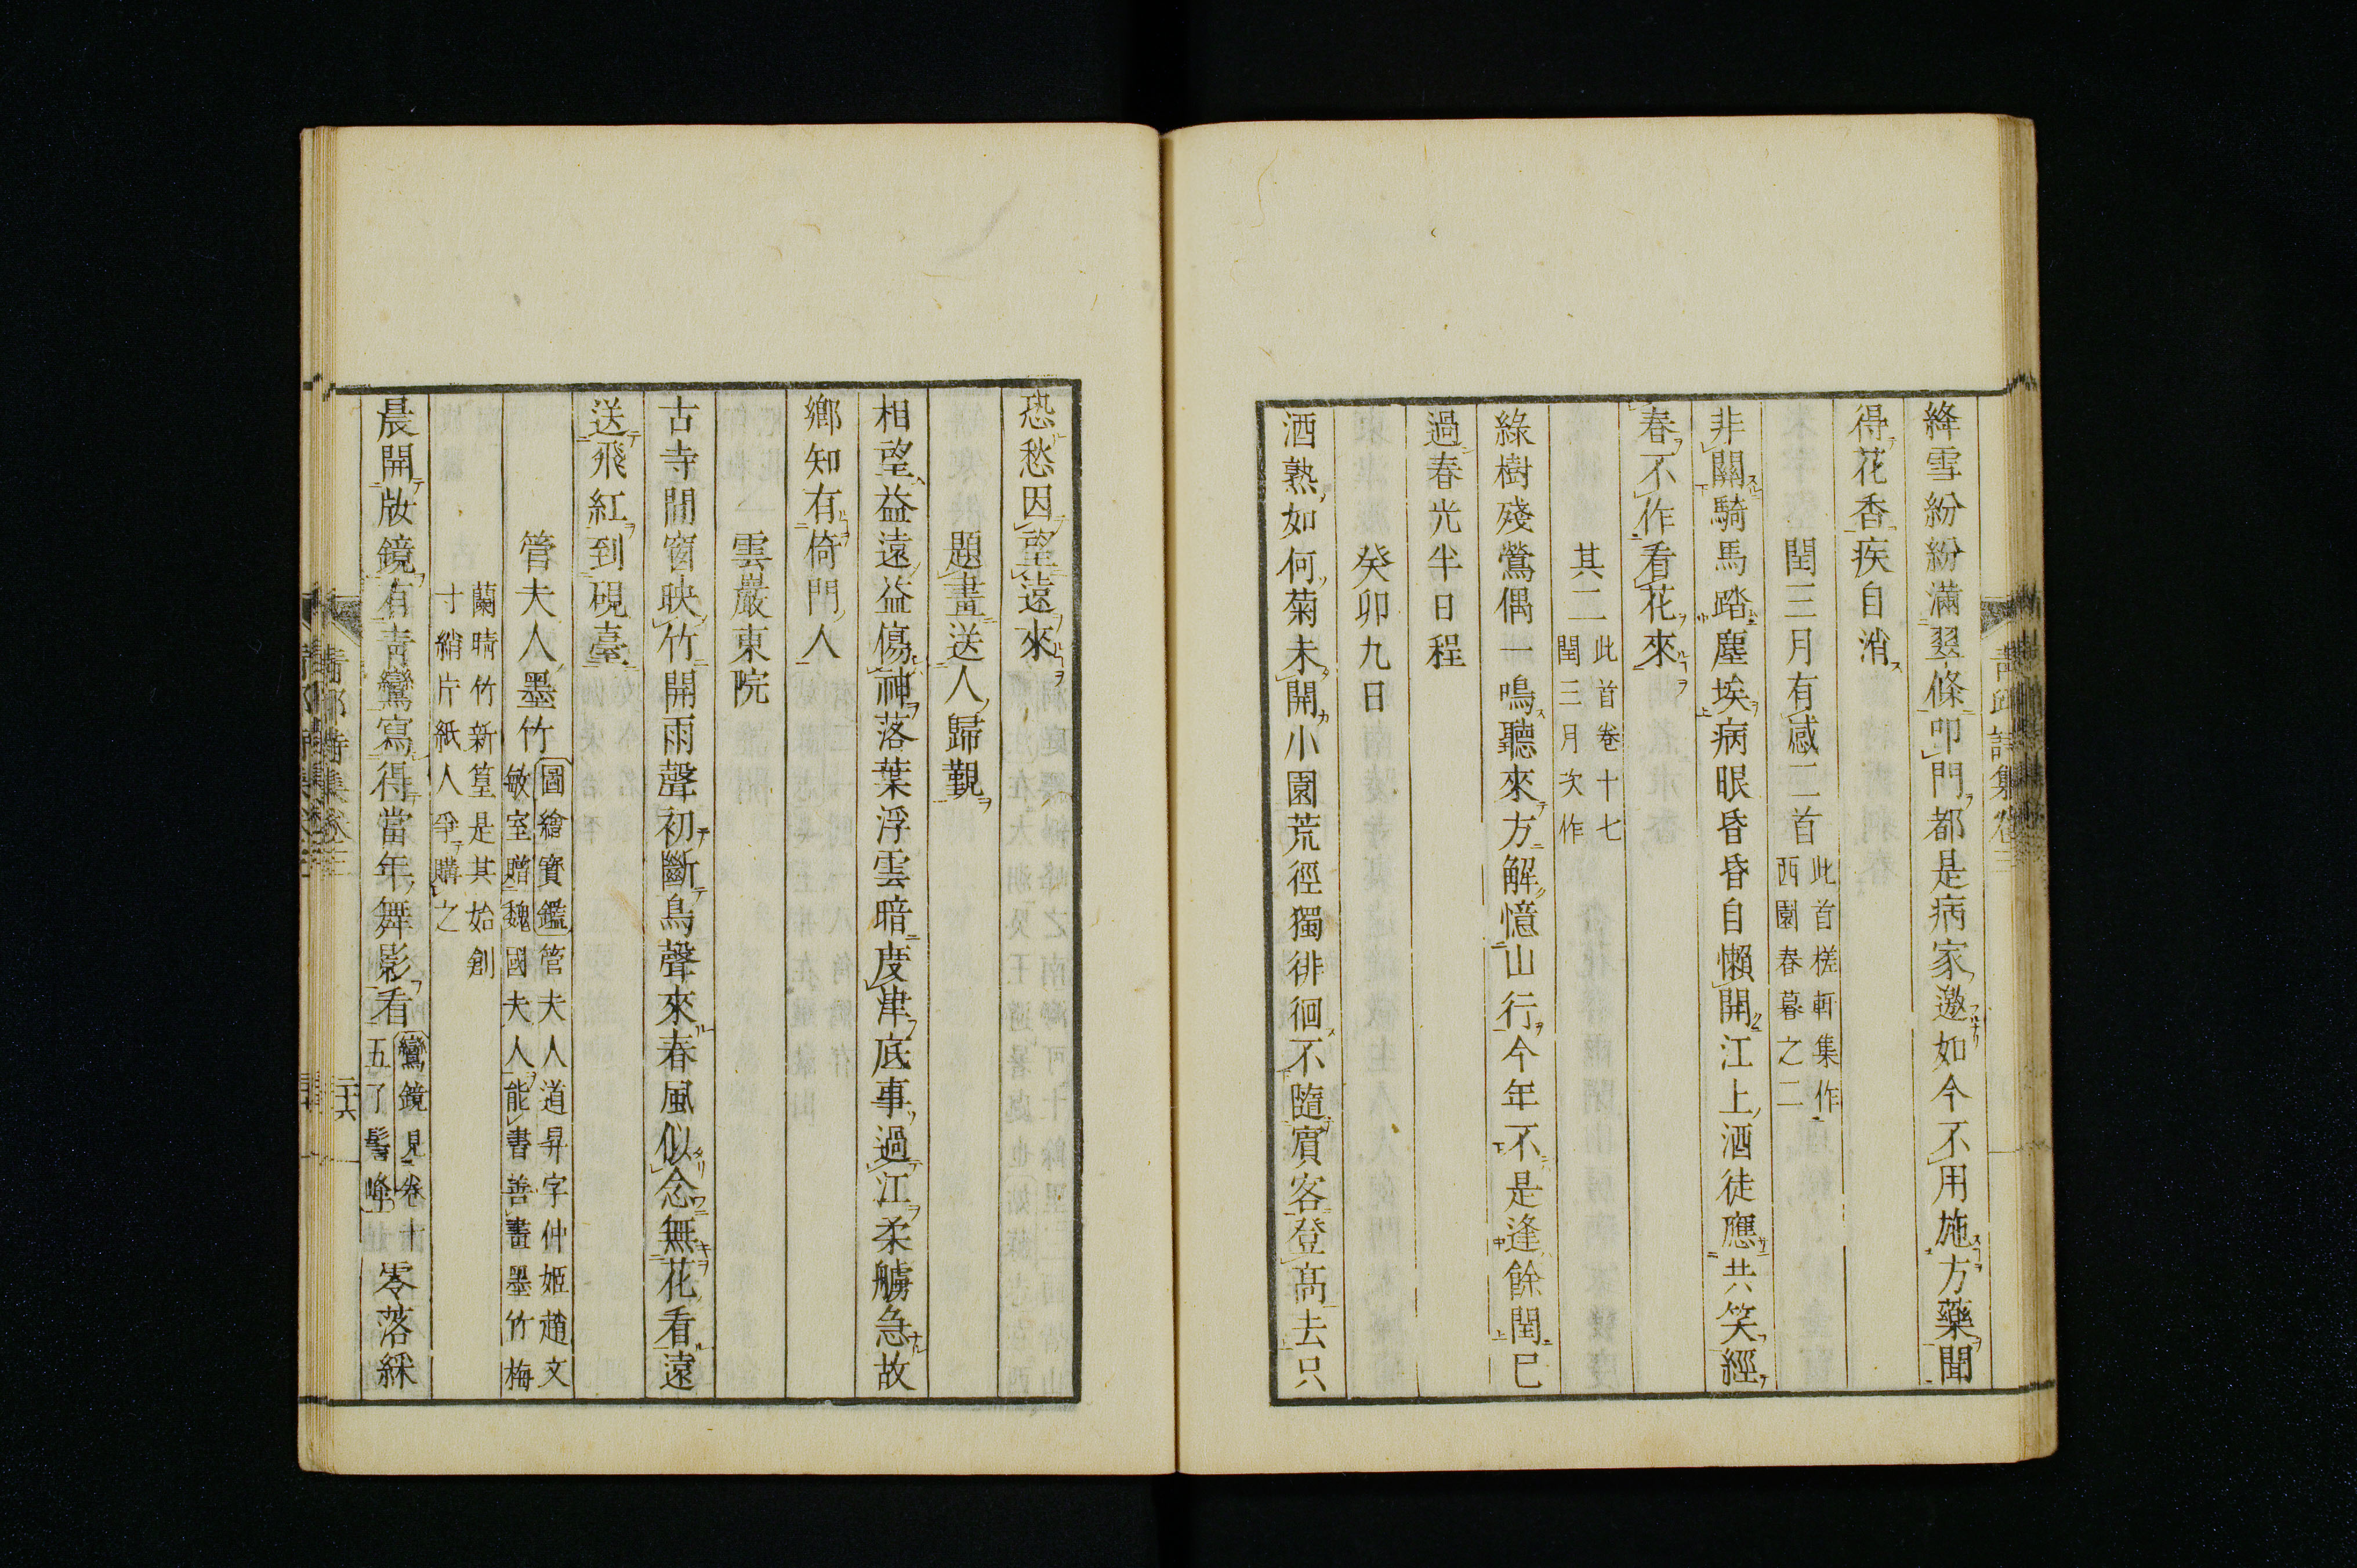 絳雪紛紛滿翠條叩門都是病家邀如今不用施方藥聞
得花香疾自消
閏三月有感二首
此首槎軒集作
西園春暮之二
非關騎馬踏塵埃病眼昏昏自懶開江上酒徒應共笑經
春不作看花來
其二
此首卷十七
閏三月次作
綠樹殘鶯偶一鳴聽來方解憶山行今年不是逢餘閏已
過春光半日程
癸卯九日
酒熟如何菊未開小園荒徑獨徘徊不隨賓客登高去只
恐愁因望遠來
題畫送人歸覲
相望益遠益傷神落葉浮雲暗度津底事過江柔艣急故
鄉知有倚門人
雲巖東院
古寺閒窗映竹開雨聲初斷鳥聲來春風似念無花看遠
送飛紅到硯臺
管夫人墨竹
圖繪寶鑑管夫人道昇字仲姬趙文
敏室贈魏國夫人能書善畫墨竹梅
蘭晴竹新篁是其始創
寸綃片紙人爭購之
晨開妝鏡有青鸞寫得當年舞影看
鸞鏡見卷十
五了髻峰
零落綵
青邱詩集卷三
二十六